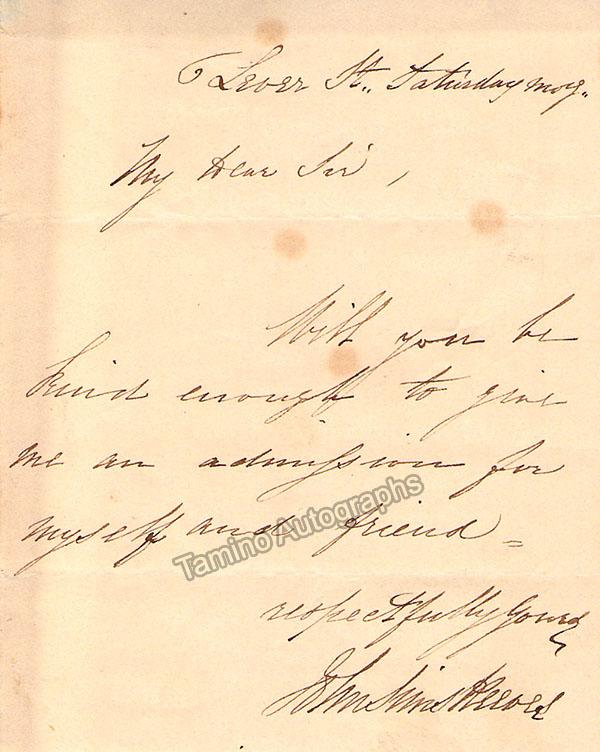 6 Lever St., Saturday mog..
My Dear Sir,
Will you be
kind enough to give
me an admission for
myself and friend =
respectfully Yours
John Sims Reeves
Tamino Autographs